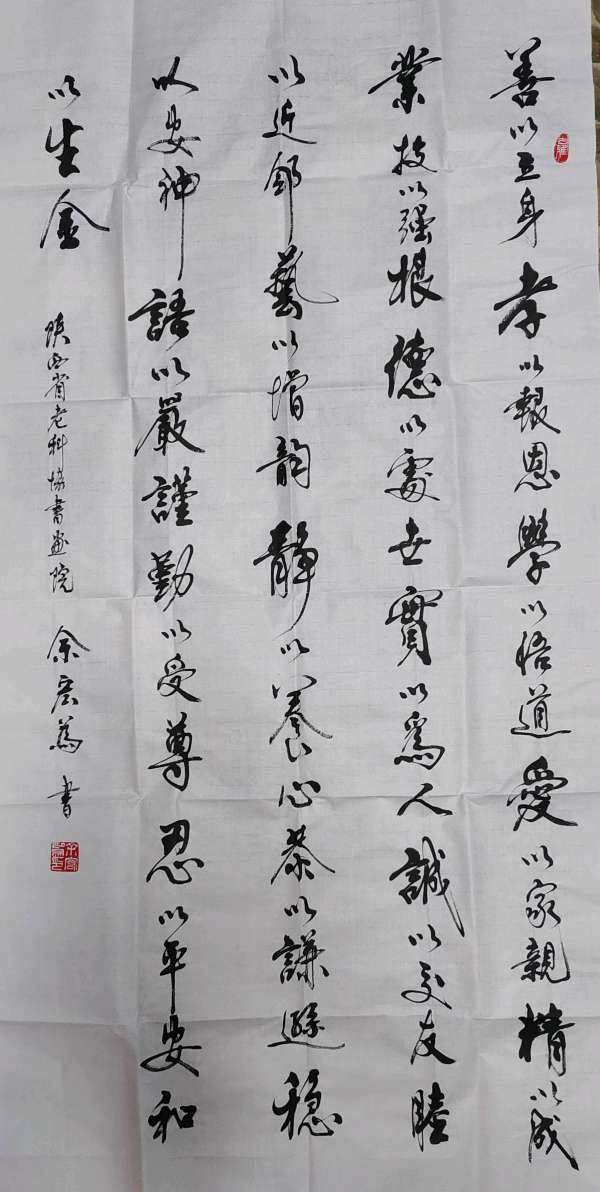 善以立身孝以報恩學以悟道愛以家親精以成
業技以强根德以處世實以爲人誠以交友睦
以近鄰藝以增韵靜以養心恭以謙遜穏
以安神語以嚴謹勤以受尊忍以平安和
以生金
陕西省老科協書画院 余宏為 書